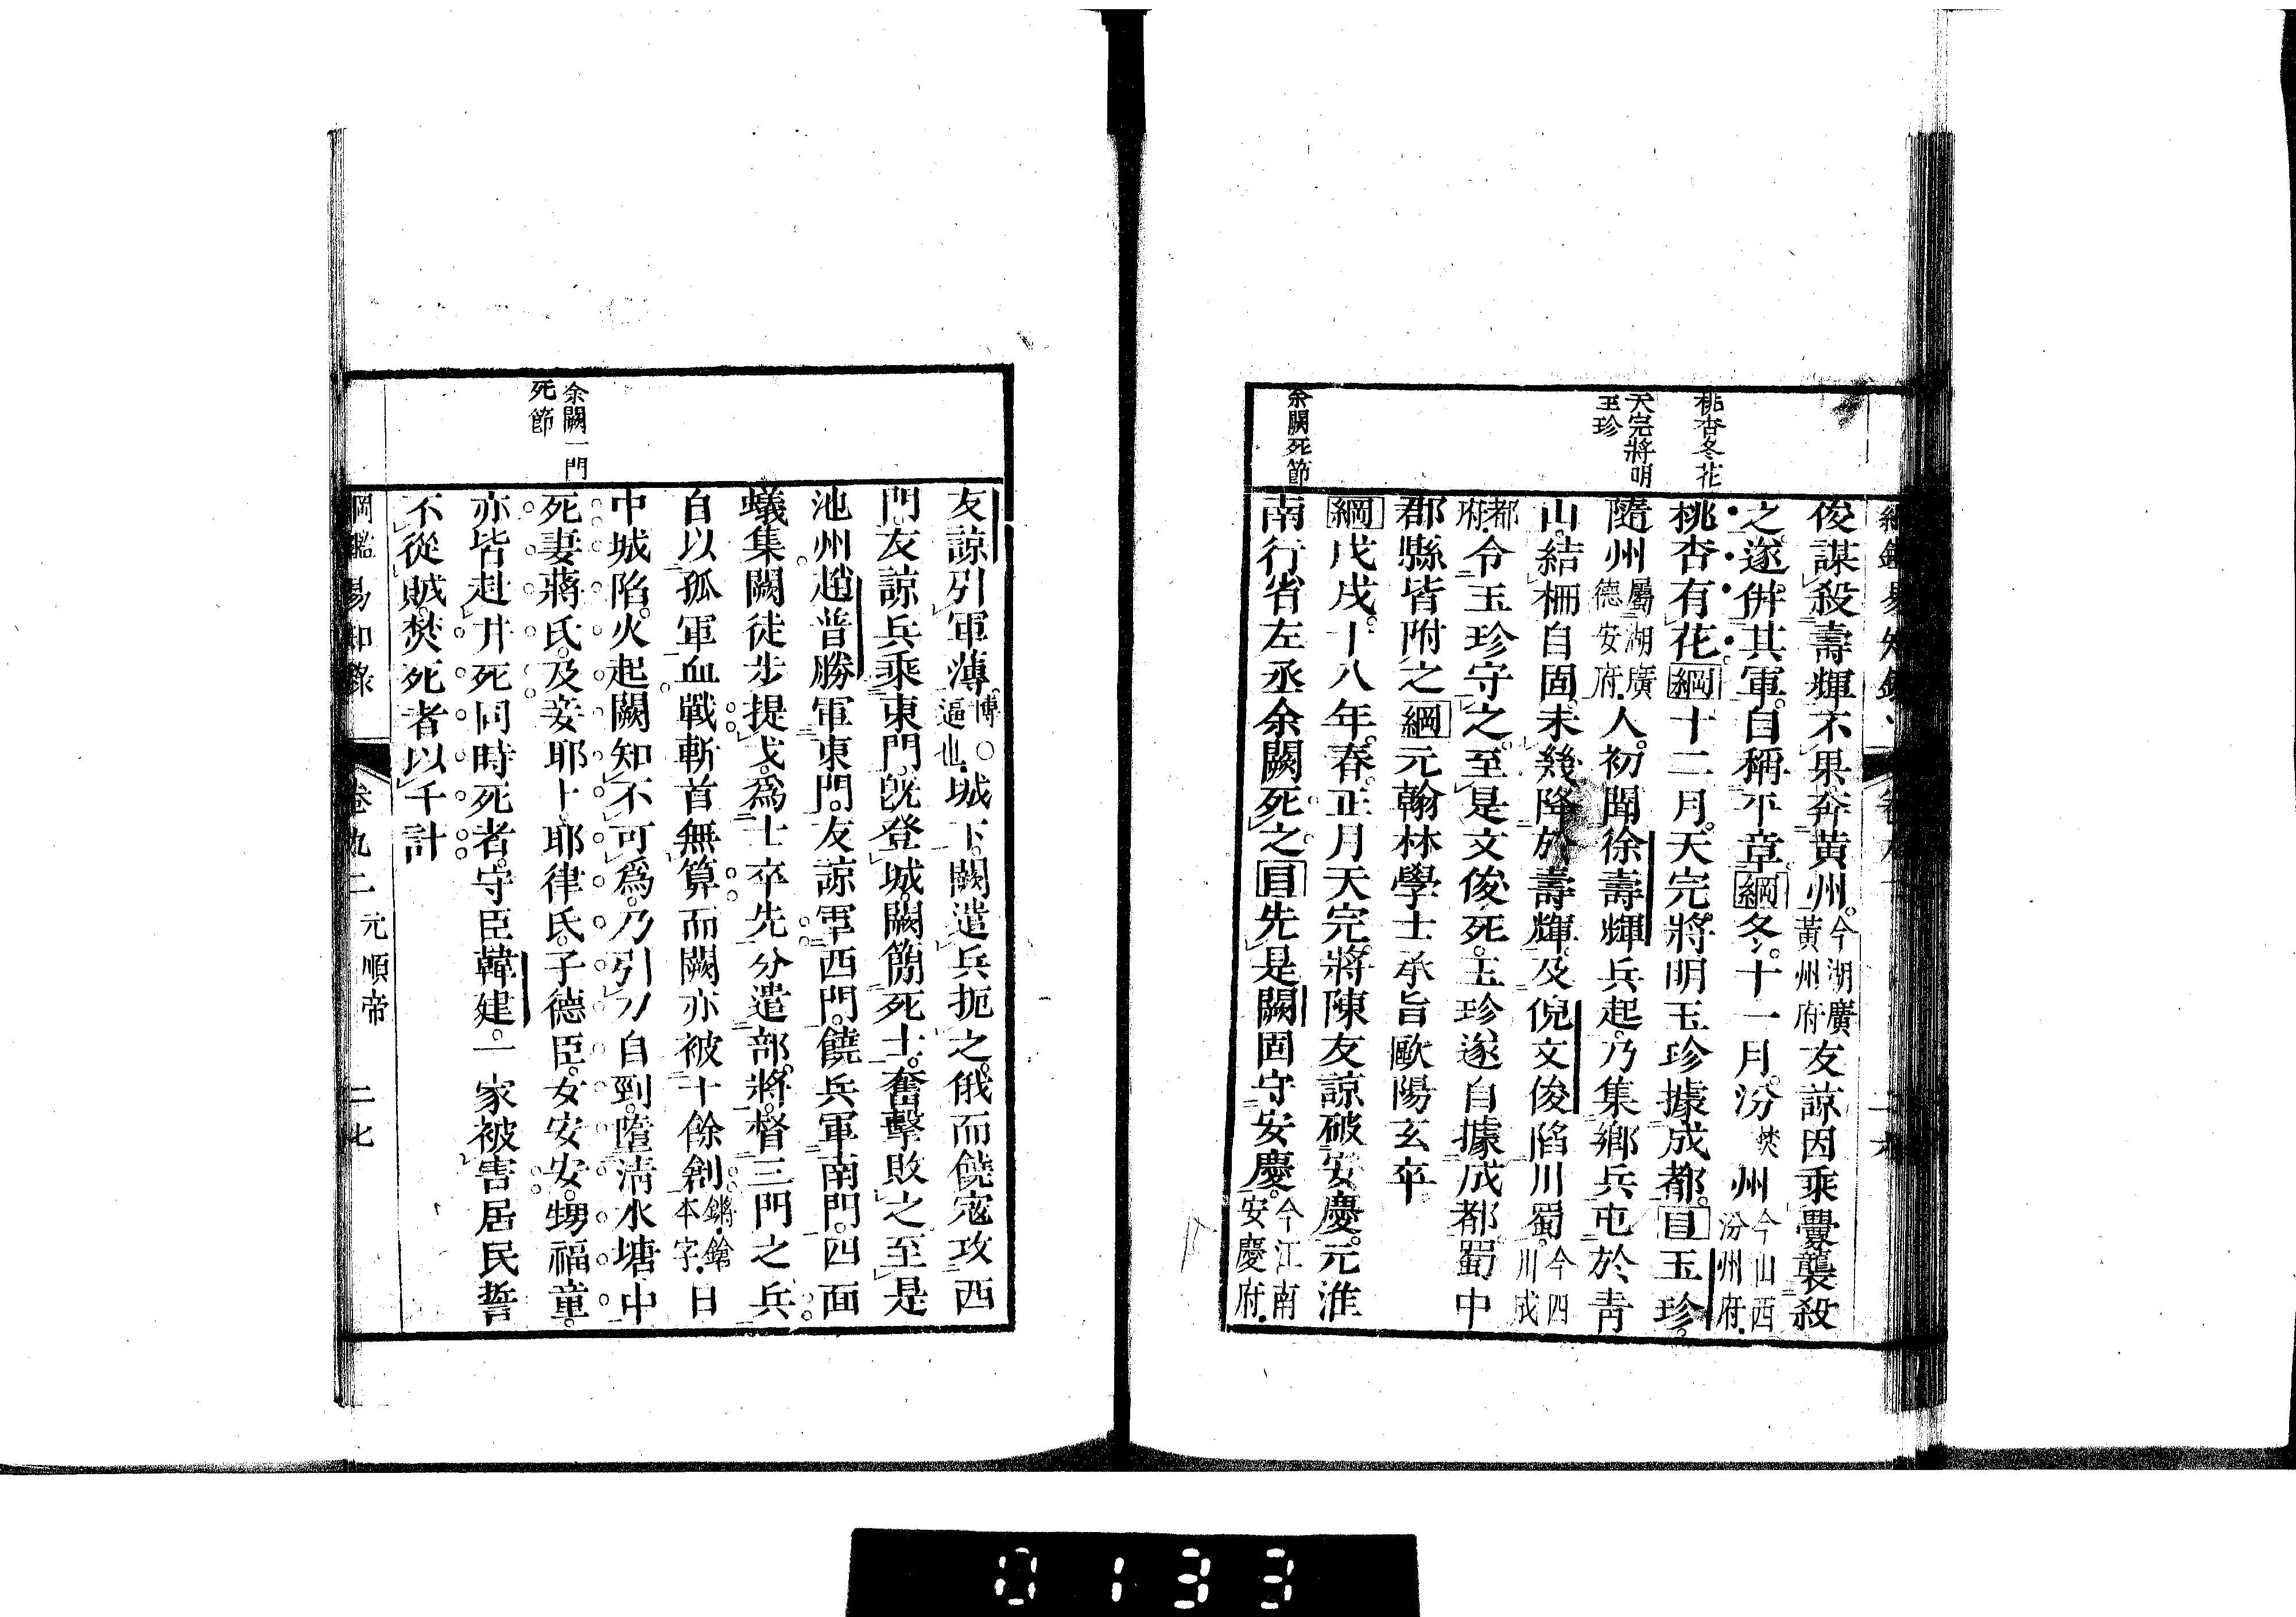 桃杏冬花
天完將明
玉珍
余闕死節
俊謀殺壽輝不果奔黃州今湖廣黃州府友諒因乘釁襲殺
之遂併其軍自稱平章綱冬十一月汾焚州今山西汾州府
桃杏有花綱十二月天完將明玉珍據成都目玉珍
隨州屬湖廣德安府人初聞徐壽輝兵起乃集鄉兵屯於青
山結柵自固未幾降於壽輝及倪文俊陷川蜀今四川成
都府令玉珍守之至是文俊死玉珍遂自據成都蜀中
郡縣皆附之綱元翰林學士承旨歐陽玄卒
綱戊戌十八年春正月天完將陳友諒破安慶元淮
南行省左丞余闕死之目先是闕固守安慶今江南安慶府
余闕一門
死節
友諒引軍薄博○逼也城下闕遣兵扼之俄而饒寇攻西
門友諒兵乘東門旣登城闕簡死士奮擊敗之至是
池州趙普勝軍東門友諒軍西門饒兵軍南門四面
蟻集闕徒步提戈爲士卒先分遣部將督三門之兵
自以孤軍血戰斬首無算而闕亦被十餘創鏘鎗本字日
中城陷火起闕知不可爲乃引刀自剄墮淸水塘中
死妻蔣氏及妾耶卜耶律氏子德臣女安安甥福童
亦皆赴井死同時死者守臣韓建一家被害居民誓
不從賊焚死者以千計
綱鑑易知錄 卷九二 元順帝 二七